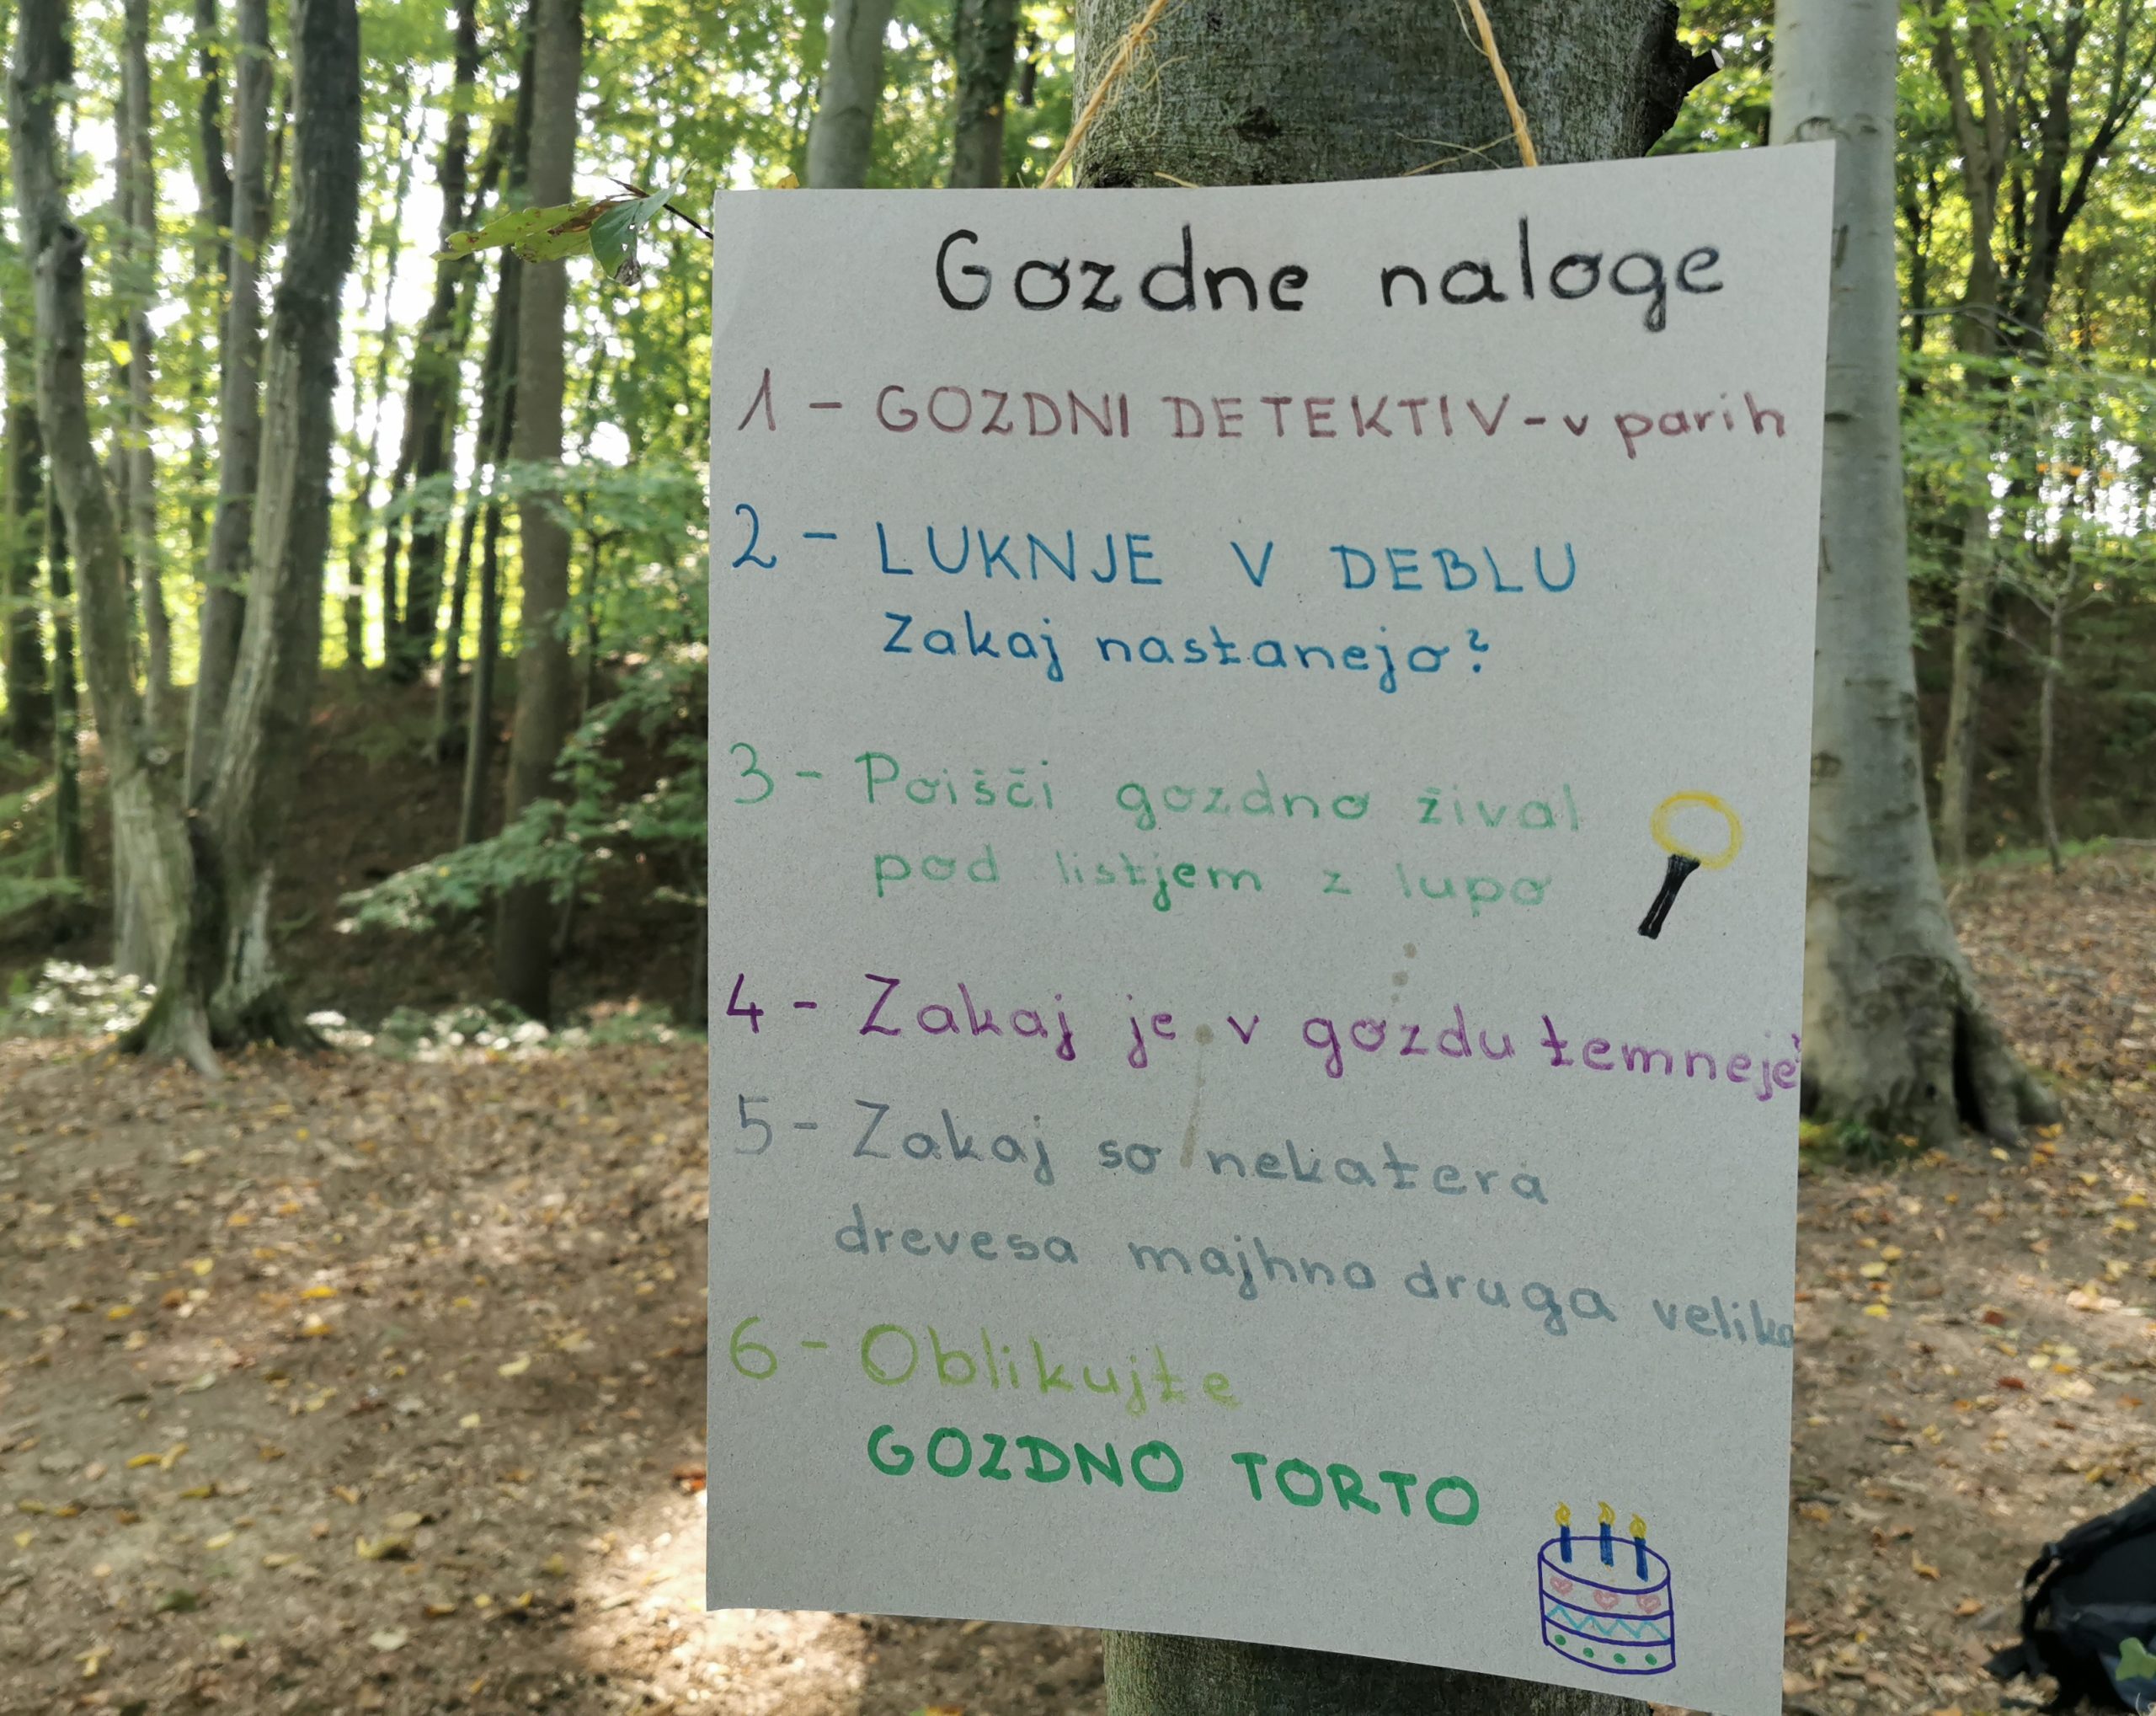 Gozdne naloge
1 - GOZDNI DETEKTIV - v parih
2 - LUKNJE V DEBLU
Zakaj nastanejo?
3 - Poišči gozdno žival
pod listjem z lupo
4 - Zakaj je v gozdu temneje?
5 - Zakaj so nekatera
drevesa majhna druga velika
6 - Oblikujte
GOZDNO TORTO